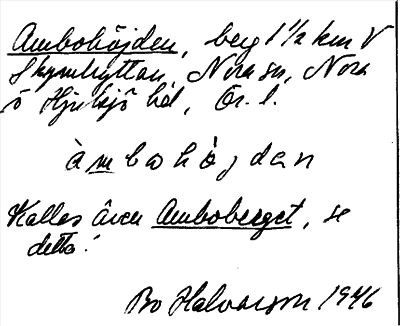 Ambohöjden, berg 1 1/2 km V
Skymhyttan, Nora sn, Nora
o Hjulsjö hd, Ör. l.
àmbohòjdan
Kallas även Amboberget, se
detta!
Bo Halvarson 1946